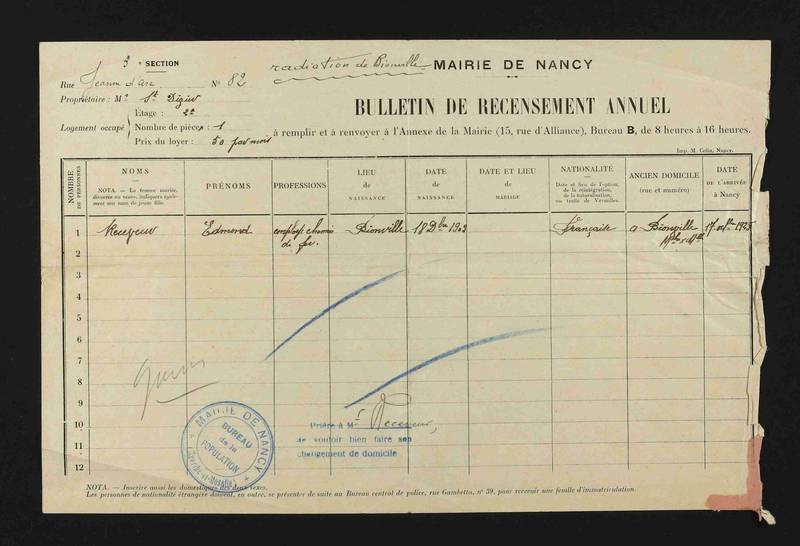 3e SECTION
radiation de Bionville
MAIRIE DE NANCY
Rue Jeanne d'arc N° 82
Propriétaire : Mr St Digier
BULLETIN DE RECENSEMENT ANNUEL
Logement occupé
Étage : 2e
Nombre de pièces : 1
Prix du loyer : 50 par mois
à remplir et à renvoyer à l'Annexe de la Mairie (15, rue d'Alliance), Bureau B, de 8 heures à 16 heures.
Imp. M. Colin, Nancy.
NOMBRE DE PERSONNES
NOMS
NOTA. — La femme mariée, divorcée ou veuve, indiquera également son nom de jeune fille.
PRÉNOMS
PROFESSIONS
LIEU de NAISSANCE
DATE de NAISSANCE
DATE ET LIEU de MARIAGE
NATIONALITÉ
Date et lieu de l'option, de la réintégration, de la naturalisation, ou traité de Versailles.
ANCIEN DOMICILE
(rue et numéro)
DATE DE L'ARRIVÉE à Nancy
1 Receveur Edmond employé chemin de fer. Bionville 18 Dbre 1903 Française a Bionville Mthe et Mlle 17 1925
2
3
4
5
6
7
8
9
10
11
12
MAIRIE DE NANCY
BUREAU
de la
POPULATION
(Meurthe-et-Moselle)
Prière à Mr Receveur,
de vouloir bien faire son
changement de domicile
NOTA. — Inscrire aussi les domestiques des deux sexes.
Les personnes de nationalité étrangère doivent, en outre, se présenter de suite au Bureau central de police, rue Gambetta, n° 39, pour recevoir une feuille d'immatriculation.